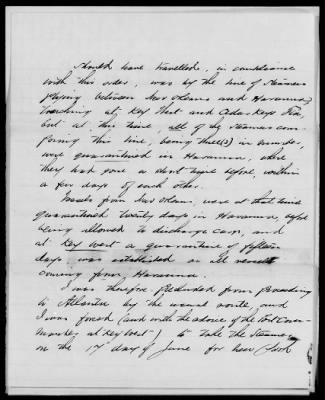 should have travelled, in compliance
with this order, was by the line of Steamers
plying between New Orleans and Havanna,
touching at Key West and Cedar Keys Fla,
but at this time, all of the Steamers com-
posing this line, being three(3) in number,
were quarantined in Havanna, where
they had gone a short time before, within
a few days of each other.
Vessels from New Orleans, were at that time
quarantined twenty days in Havanna, before
being allowed to discharge cargo, and
at Key West a quarantine of fifteen
days was established on all vessels
coming from Havanna.
I was therefore precluded from proceeding
to Atlanta by the usual route, and
I was forced (and with the advice of the Post Com-
mander at Key West) to take the Steamer
on the 17" day of June for New York